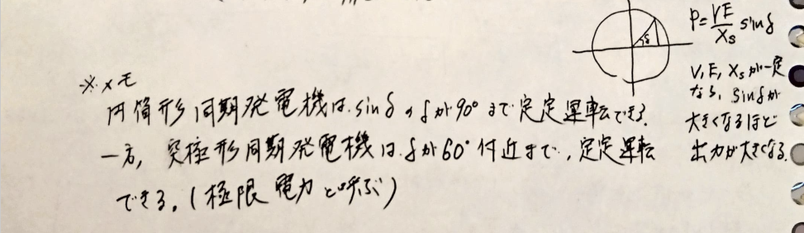 ※メモ
円筒形同期発電機は、sinδのδが90°まで安定運転できる。
一方、突極形同期発電機は、δが60°付近まで、安定運転
できる。(極限電力と呼ぶ)
δ
P=VE/Xs sinδ
V, E, Xsが一定
なら、sinδが
大きくなるほど
出力が大きくなる。